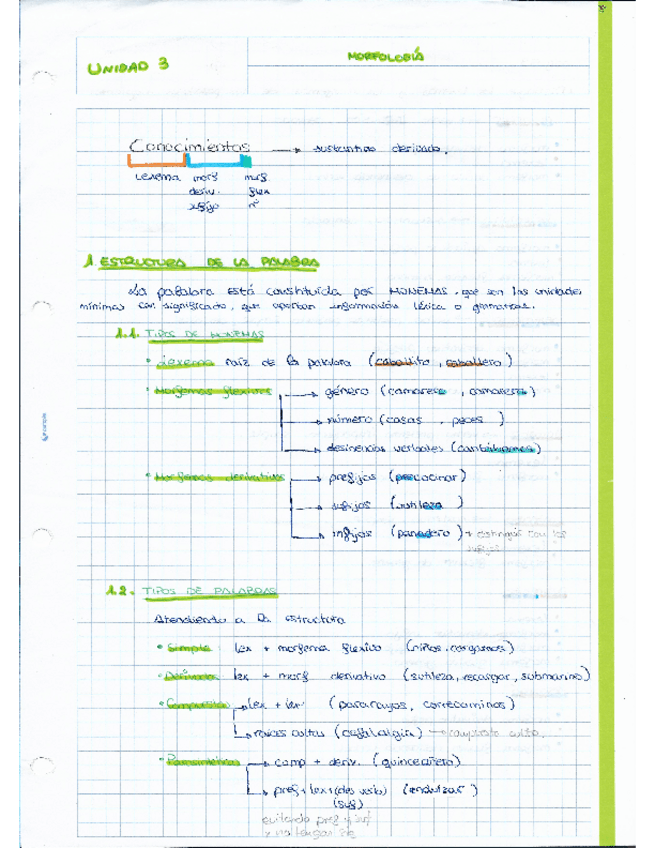 UNIDAD 3
MORFOLOGÍA
Conocimientos → sustantivo derivado.
Lexema morf morf.
deriv. flex
sufijo nº
1. ESTRUCTURA DE LA PALABRA
La palabra está constituida por MONEMAS, que son las unidades
mínimas con significado, que aportan información léxica o gramatical.
1.1. TIPOS DE MONEMAS
• Lexema raíz de la palabra (caballito, caballero)
• Morfemas flexivos → género (camarero, camarera)
→ número (casas, peces)
→ desinencias verbales (cantábamos)
• Morfemas derivativos → prefijos (precocinar)
→ sufijos (sutileza)
→ infijos (panadero) + con los
1.2. TIPOS DE PALABRAS
Atendiendo a la estructura
• Simple lex + morfema flexivo (niños, cargamos)
• Derivadas lex + morf derivativo (sutileza, recargar, submarino)
• Compuestas → lex + lex (pararrayos, correcaminos)
→ raíces cultas (cefalalgia) → compuesto culto.
• Parasintéticas → comp + deriv. (quinceañero)
→ pref + lex + (des verbo) (endulzar)
(suf)
quitando pref y suf
y no tengan